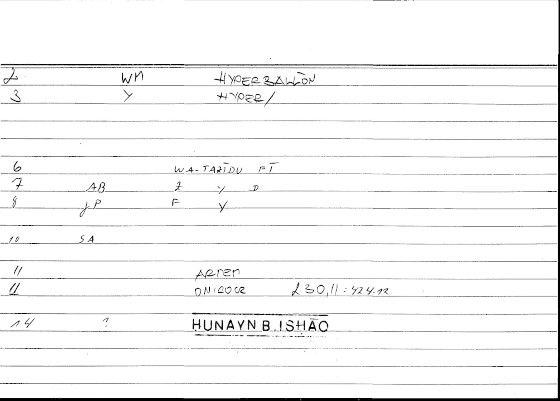 2 WM HYPERBALLŌN
3 Y HYPER/
6 WA-TAZĪDU FĪ
7 AB Z Y D
8 JP F Y
10 SA
11 ARTEM
11 ONIROCR 230,11:424.12
14 ? HUNAYN B. ISHĀQ